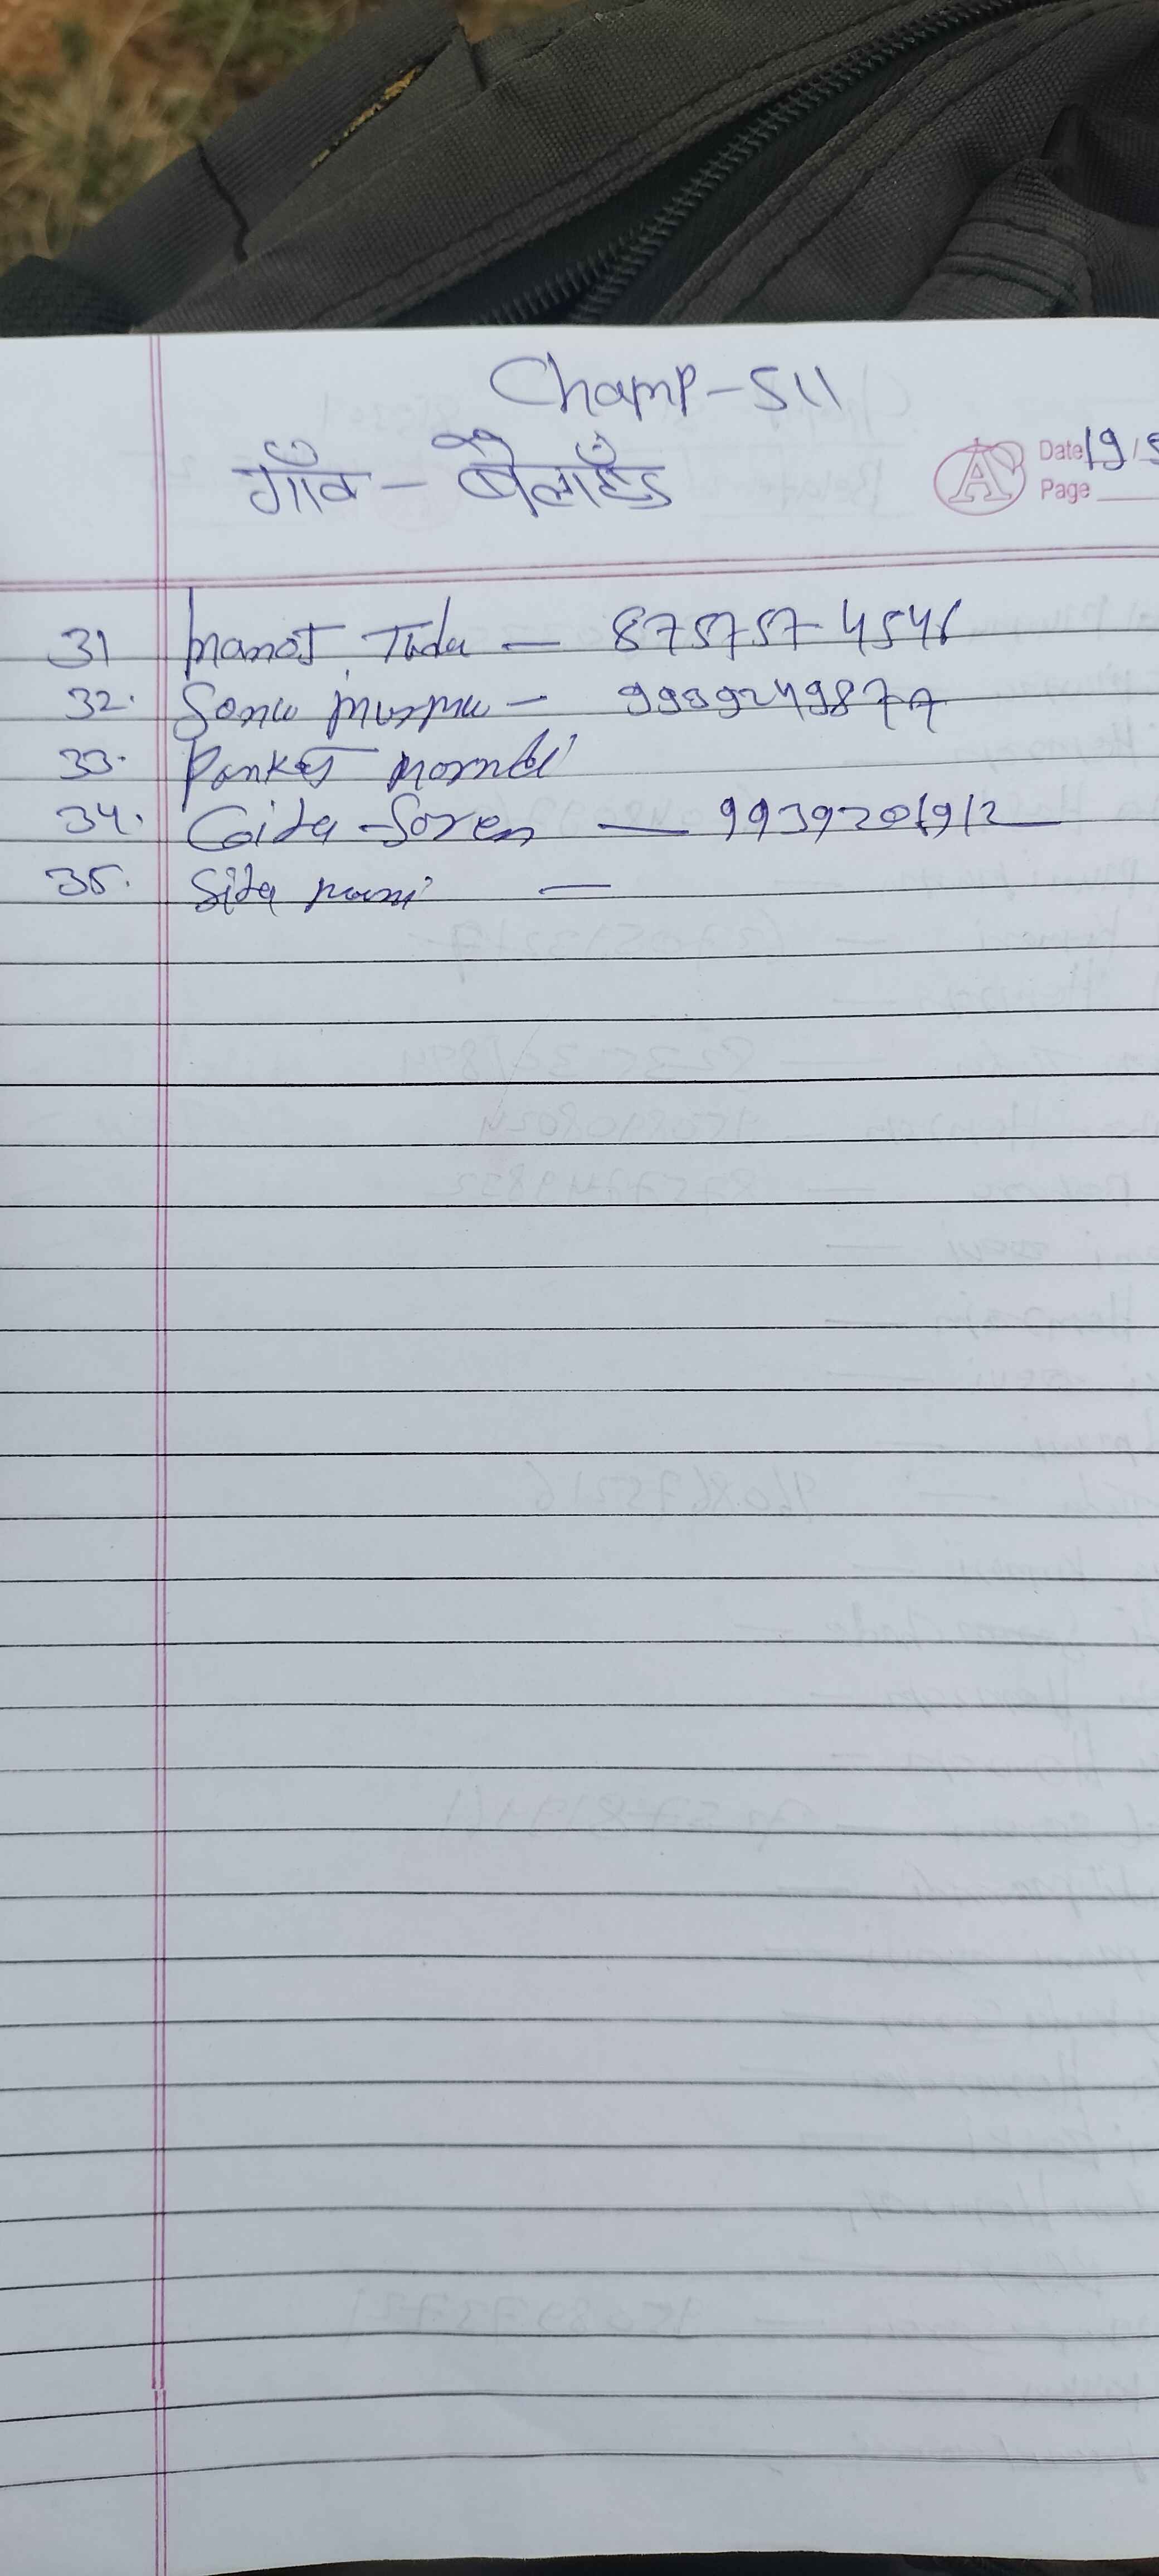 Champ-511
गाँव - बैलाटाँड
Date 19/
Page
31 manoj Tudu — 8757574546
32. Sonu murmu — 9939249877
33. Pankaj marndi
34. Gita Soren — 9939201912
35. Sita